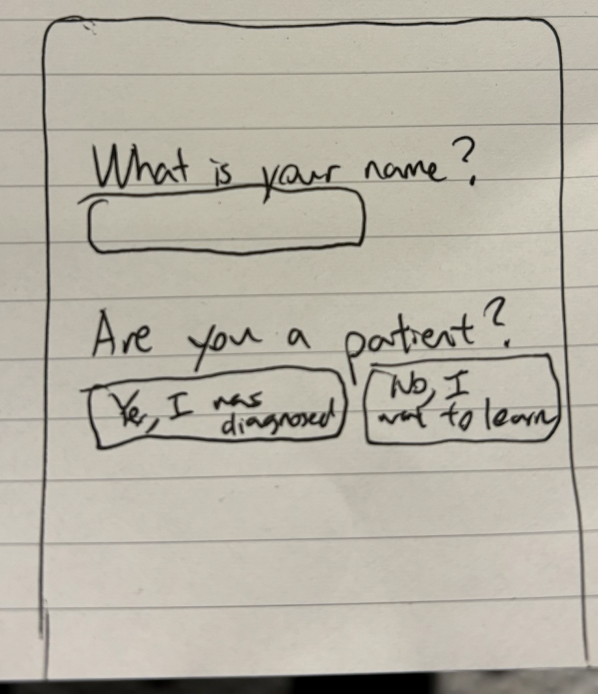 What is your name?
Are you a patient?
Yes, I was
diagnosed
No, I
want to learn